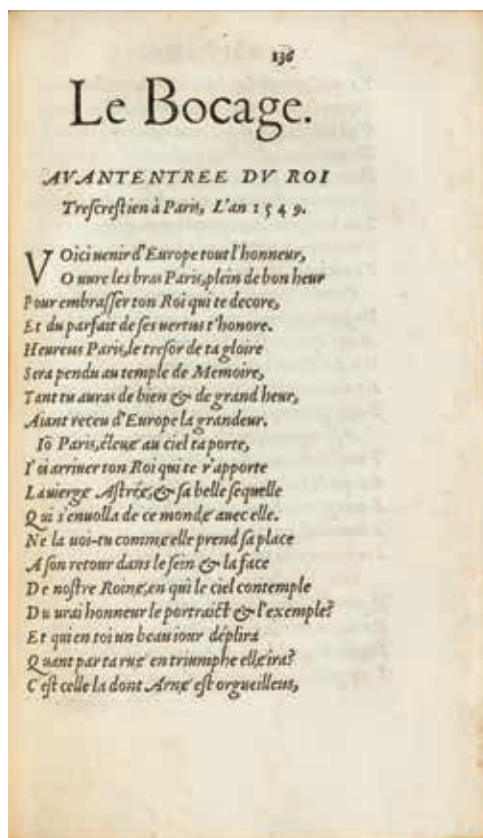 136
Le Bocage.
AVANTENTREE DV ROI
Treſcreſtien à Paris, L'an 1549.
VOici uenir d'Europe tout l'honneur,
Ouure les bras Paris, plein de bon heur
Pour embraſſer ton Roi qui te decore,
Et du parfait de ſes uertus t'honore.
Heureus Paris, le treſor de ta gloire
Sera pendu au temple de Memoire,
Tant tu auras de bien & de grand heur,
Aiant receu d'Europe la grandeur.
Iô Paris, éleuę au ciel ta porte,
I'oi arriuer ton Roi qui te r'apporte
La uiergę Aſtréę, & ſa belle ſequelle
Qui s'enuolla de ce mondę auec elle.
Ne la uoi-tu commę elle prend ſa place
A ſon retour dans le ſein & la face
De noſtre Roinę, en qui le ciel contemple
Du urai honneur le portraict & l'exemple?
Et qui en toi un beau iour déplira
Quant par ta ruę en triumphe ellę ira?
C'eſt celle la dont Arnę eſt orgueilleus,